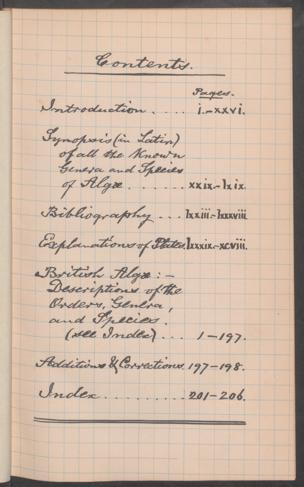 Contents.
Pages.
Introduction .... i.-xxvi.
Synopsis (in Latin)
of all the Known
Genera and Species
of Algæ ...... xxix.-lxix.
Bibliography ... lxxiii.-lxxxviii.
Explanations of Plates. lxxxix.-xcviii.
British Algæ :-
Descriptions of the
Orders, Genera,
and Species.
(see Index) ... 1-197.
Additions & Corrections. 197-198.
Index .......... 201-206.